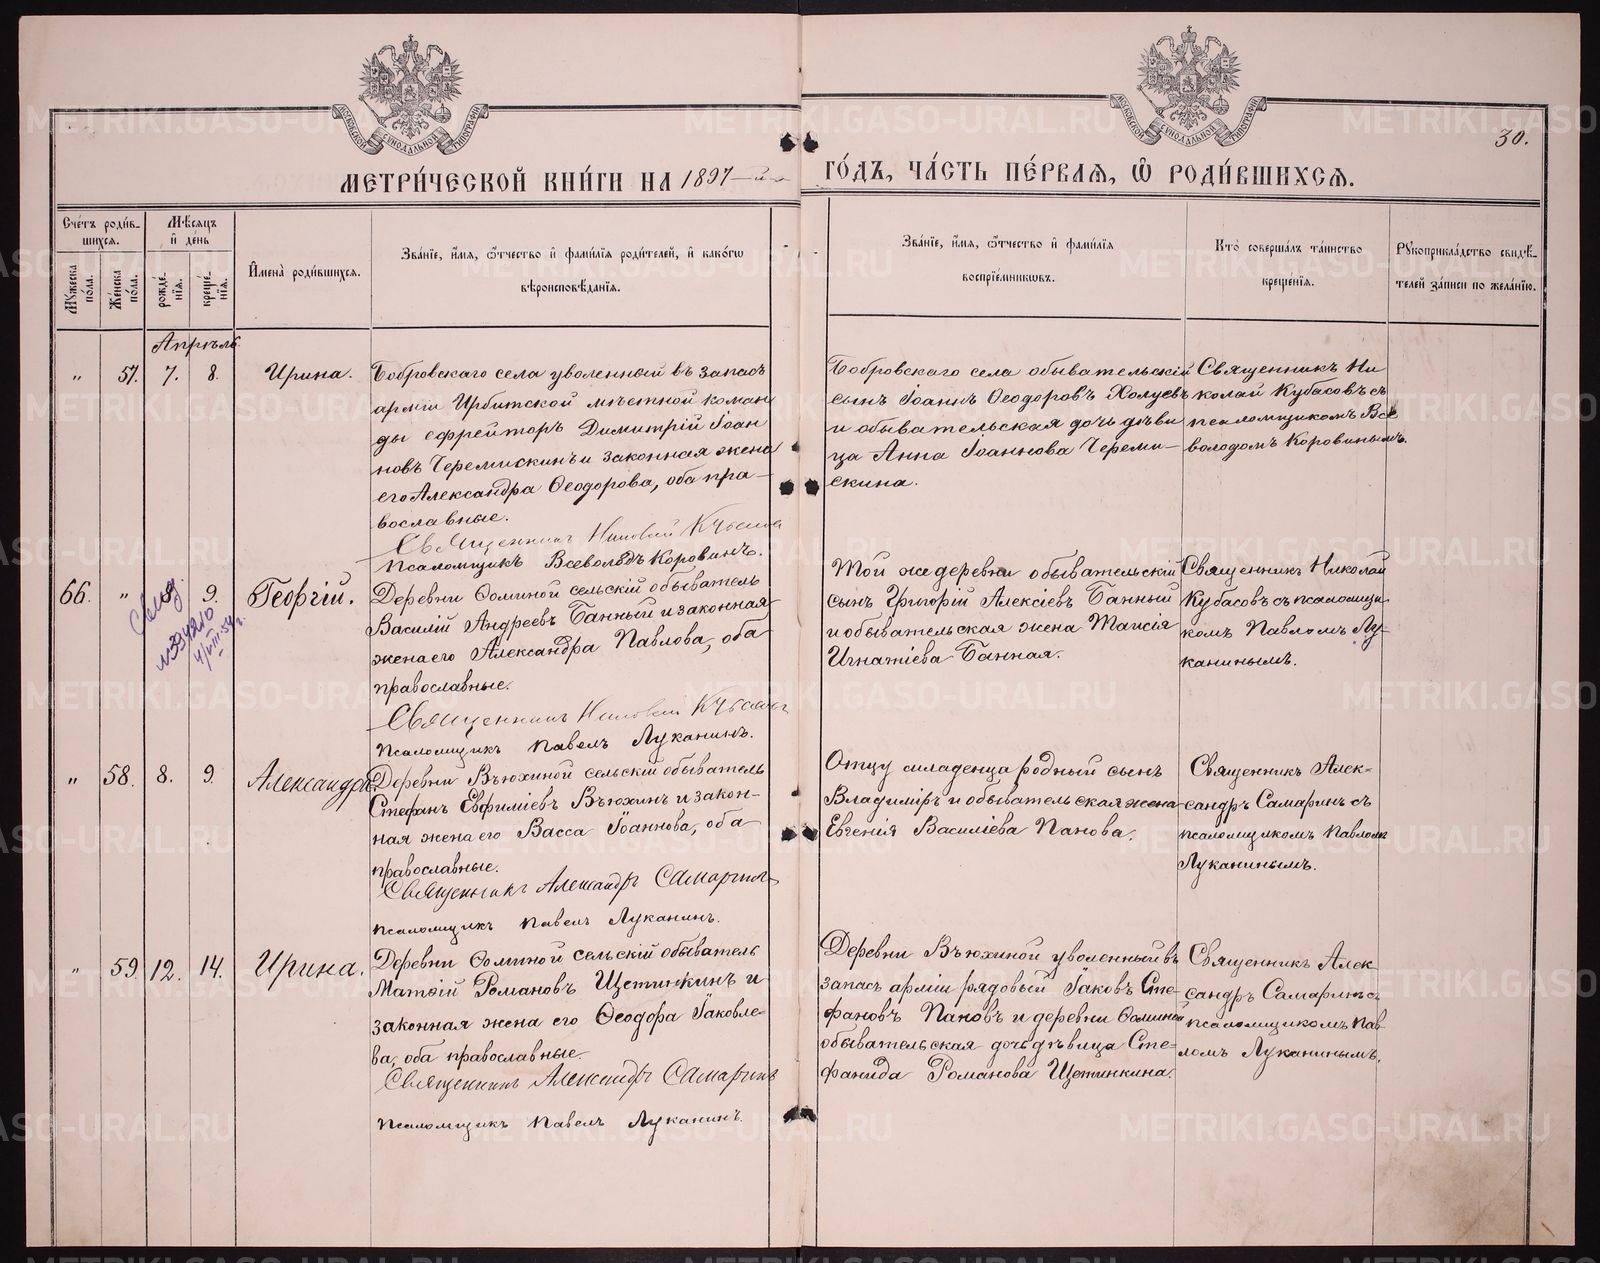 МОСКОВСКОЙ СѴНОДАЛЬНОЙ ТИПОГРАФІИ
МОСКОВСКОЙ СѴНОДАЛЬНОЙ ТИПОГРАФІИ
30.
МЕТРИ́ЧЕСКОЙ КНИ́ГИ НА 1897 ГО́ДЪ, ЧА́СТЬ ПЕ́РВАѦ, Ѡ҆ РОДИ́ВШИХСѦ.
Сче́тъ роди́в-
шихсѧ.
Мꙋ́жеска по́ла.
Же́нска по́ла.
Мѣ́сѧцъ
и҆ де́нь
рожде́-
нїѧ.
креще́-
нїѧ.
И҆мена̀ роди́вшихсѧ.
Зва́нїе, и҆́мѧ, ѻ҆́тчество и҆ фами́лїѧ роди́телей, и҆ како́гѡ
вѣроисповѣ́данїѧ.
Зва́нїе, и҆́мѧ, ѻ҆́тчество и҆ фами́лїѧ
воспрїе́мникѡвъ.
Кто̀ соверша́лъ та́инство
креще́нїѧ.
Рꙋкоприкла́дство свидѣ́-
телей за́писи по жела́нїю.
Апрѣль
„ 57. 7. 8. Ирина.
Бобровскаго села уволенный въ запасъ
арміи Ирбитской мѣстной коман
ды ефрейторъ Димитрій Іоан
новъ Черемискинъ и законная жена
его Александра Ѳеодорова, оба пра-
вославные.
Священникъ Николай Кубасовъ
Псаломщикъ Всеволодъ Коровинъ.
Бобровскаго села обывательскій
сынъ Іоаннъ Ѳеодоровъ Холуевъ
и обывательская дочь дѣви
ца Анна Іоаннова Череми-
скина.
Священникъ Ни
колай Кубасовъ съ
псаломщикомъ Все
володомъ Коровинымъ.
66. „ 9. Георгій.
4/VIII-54 г.
Деревни Ѳоминой сельскій обыватель
Василій Андреевъ Банный и законная
жена его Александра Павлова, оба
православные.
Священникъ Николай Кубасовъ
Псаломщикъ Павелъ Луканинъ.
Той же деревни обывательскій
сынъ Григорій Алексіевъ Банный
и обывательская жена Таисія
Игнатіева Банная.
Священникъ Николай
Кубасовъ съ псаломщи
комъ Павломъ Лу-
канинымъ.
„ 58. 8. 9. Александра
Деревни Вьюхиной сельскій обыватель
Стефанъ Евфиміевъ Вьюхинъ и закон-
ная жена его Васса Іоаннова, оба
православные.
Священникъ Александръ Самаринъ
Псаломщикъ Павелъ Луканинъ.
Отцу младенца родный сынъ
Владиміръ и обывательская жена
Евгенія Василіева Панова.
Священникъ Алек-
сандръ Самаринъ съ
псаломщикомъ Павломъ
Луканинымъ.
„ 59. 12. 14. Ирина.
Деревни Ѳоминой сельскій обыватель
Матѳій Романовъ Щетинкинъ и
законная жена его Ѳеодора Іаковле-
ва, оба православные.
Священникъ Александръ Самаринъ
Псаломщикъ Павелъ Луканинъ.
Деревни Вьюхиной уволенный въ
запасъ арміи рядовый Іаковъ Сте-
фановъ Пановъ и деревни Ѳоминой
обывательская дочь дѣвица Сте-
фанида Романова Щетинкина.
Священникъ Алек
сандръ Самаринъ съ
псаломщикомъ Пав-
ломъ Луканинымъ.
METRIKI.GASO-URAL.RU